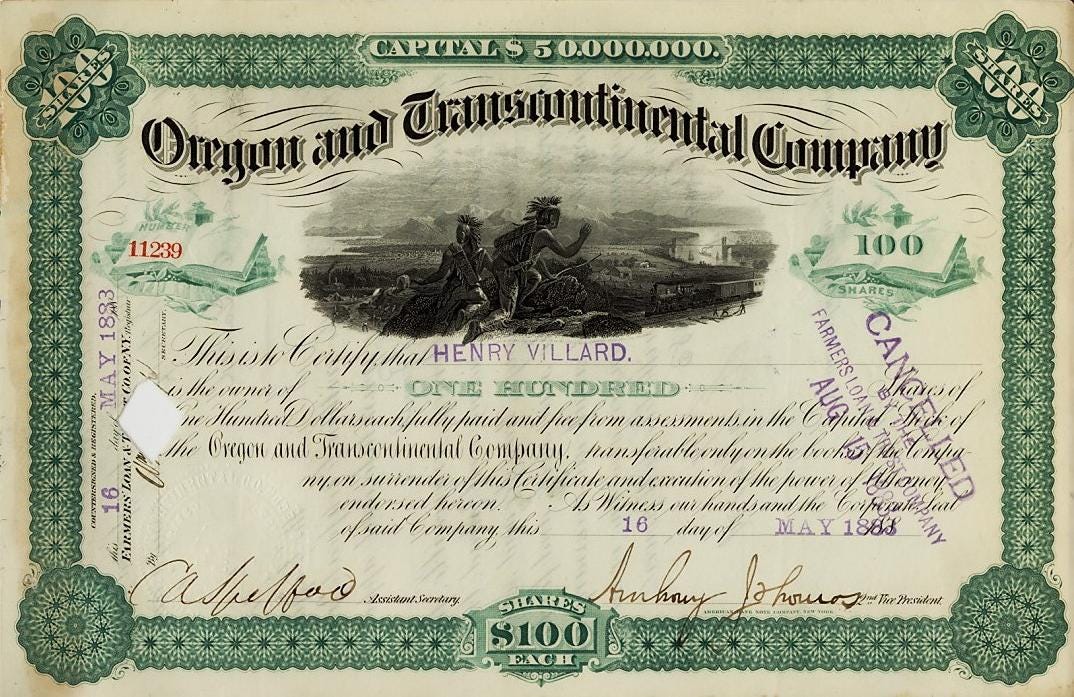 CAPITAL $50.000.000.
100 SHARES
100 SHARES
Oregon and Transcontinental Company
NUMBER
11239
100
SHARES
This is to Certify, that HENRY VILLARD.
is the owner of ONE HUNDRED Shares of
One Hundred Dollars each, fully paid and free from assessments, in the Capital Stock of
the Oregon and Transcontinental Company, transferable only on the books of the Compa-
ny, on surrender of this Certificate and execution of the power of Attorney
endorsed hereon. As Witness our hands and the Corporate Seal
of said Company, this 16 day of MAY 1883
Assistant Secretary.
Anthony J Thomas 2nd Vice President.
AMERICAN BANK NOTE COMPANY, NEW YORK.
SHARES
$100
EACH
COUNTERSIGNED & REGISTERED,
this 16 day of MAY 1883
FARMERS LOAN & T CO. OF N.Y. Registrar
By
SECRETARY.
CANCELLED
BY THE
FARMERS LOAN & TRUST COMPANY
AUG 15